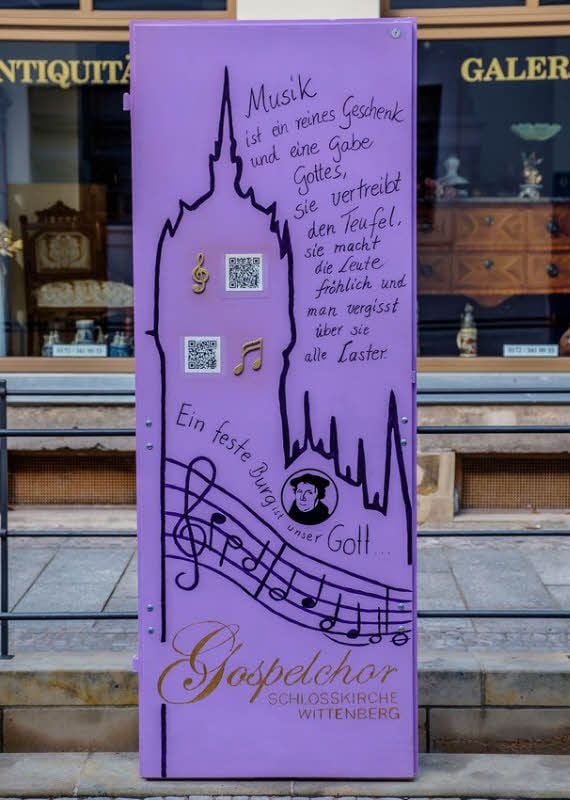 NTIQUITÄ
GALER
Musik
ist ein reines Geschenk
und eine Gabe
Gottes,
sie vertreibt
den Teufel,
sie macht
die Leute
fröhlich und
man vergisst
über sie
alle Laster.
Ein feste Burg ist unser Gott...
Gospelchor
SCHLOSSKIRCHE
WITTENBERG